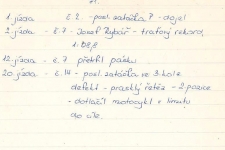 1. jízda - č. 2 - posl. zatáčka P - dojel
2. jízda - č. 7 - Josef Rybář - traťový rekord
1:08,8
12. jízda - č. 7 přetrhl pásku
20. jízda - č. 14 - posl. zatáčka ve 3. kole
defekt - prasklý řetěz - 2. pozice
- dotlačil motocykl v limitu
do cíle